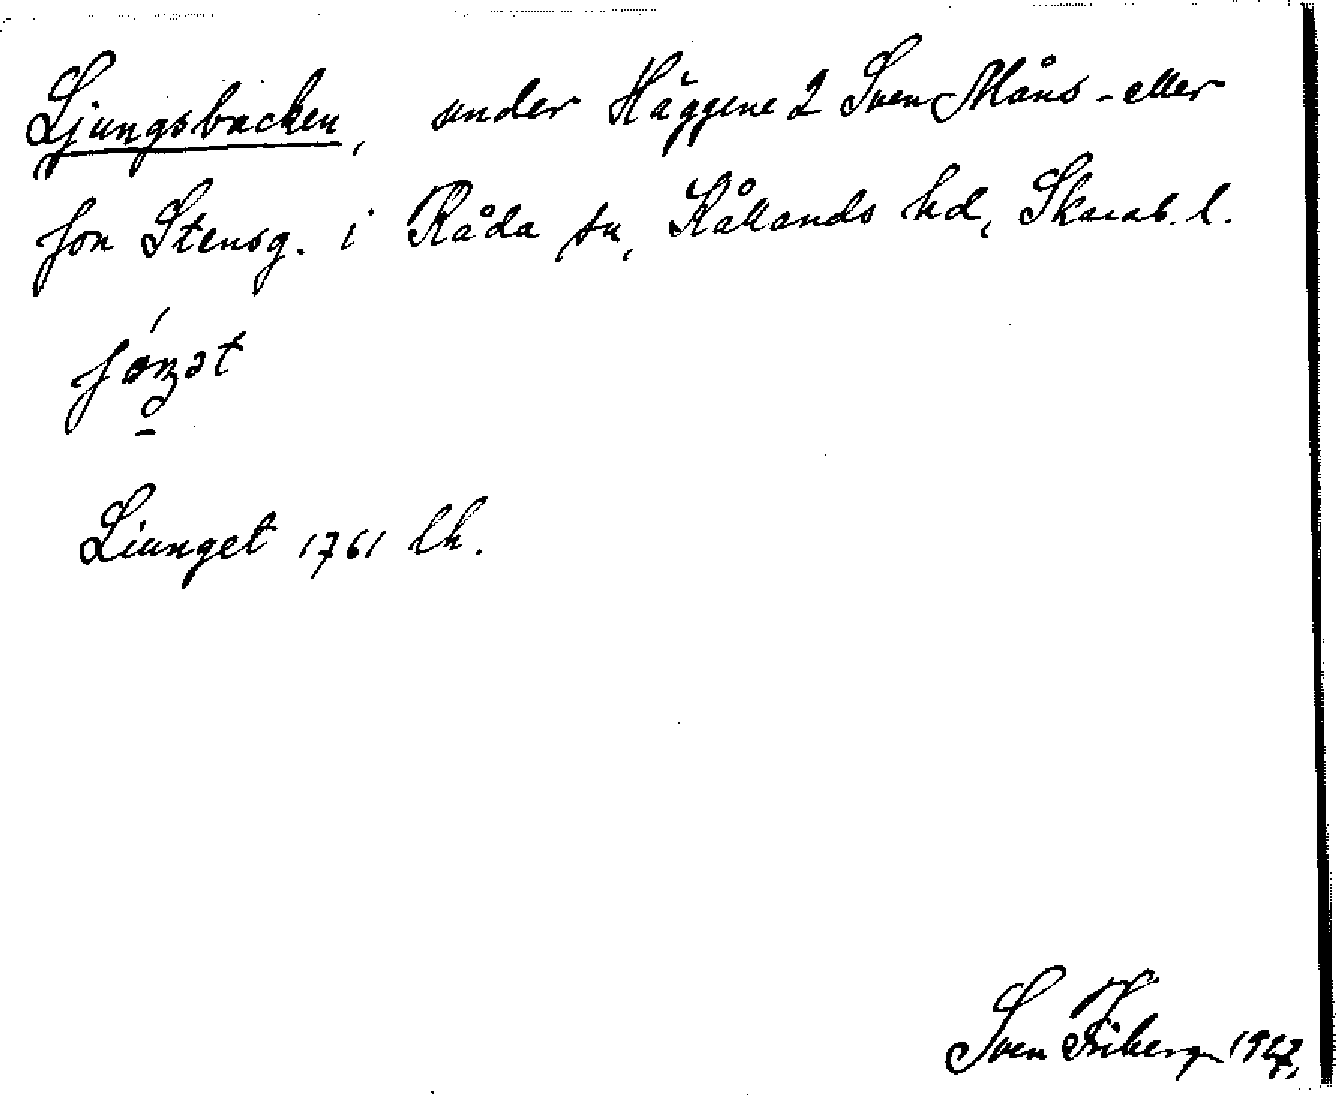 Ljungsbacken, under Häggene 2 Sven Måns- eller
Jon Stensg. i Råda sn, Kållands hd, Skarab. l.
Liunget 1761 lh.
Sven Friberg 1947.